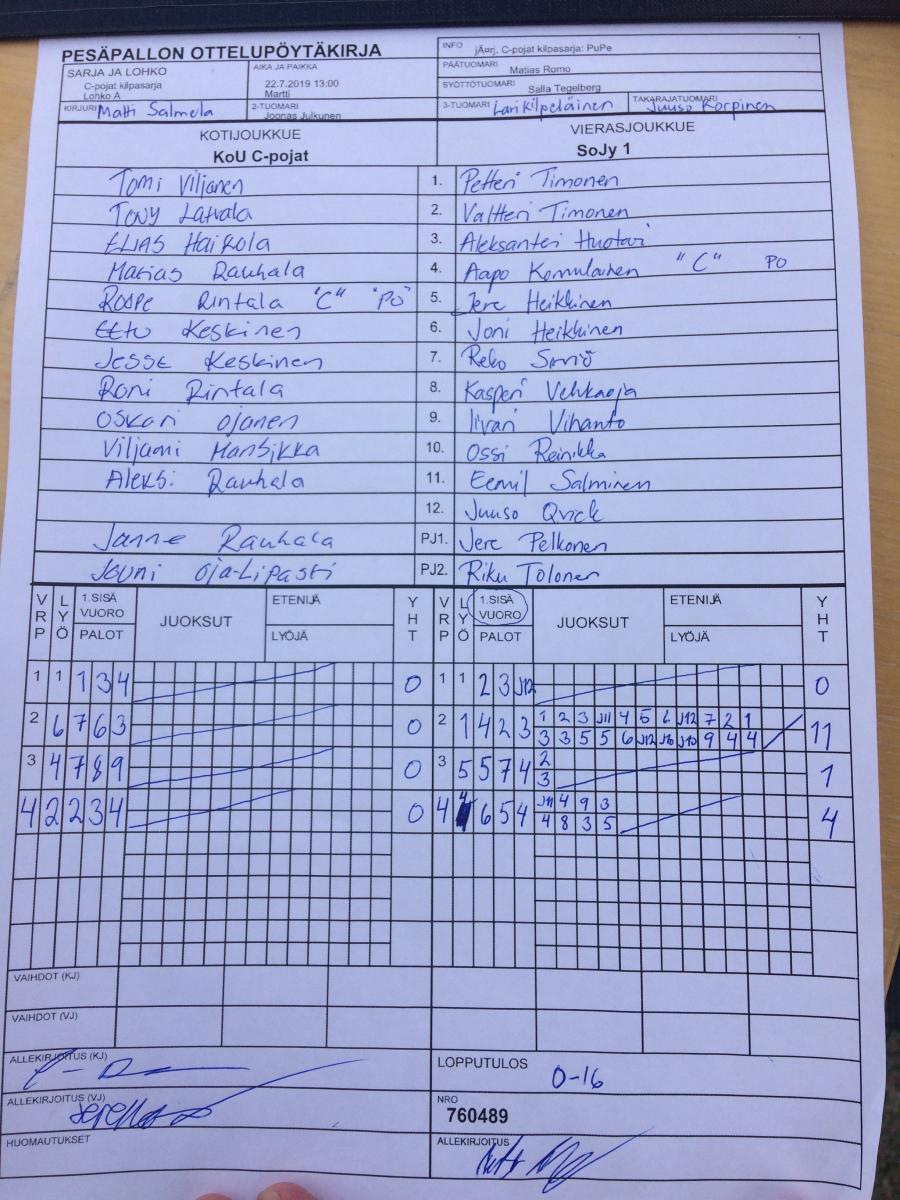 PESÄPALLON OTTELUPÖYTÄKIRJA
INFO jÄ¤rj. C-pojat kilpasarja: PuPe
SARJA JA LOHKO C-pojat kilpasarja Lohko A
AIKA JA PAIKKA 22.7.2019 13:00 Martti
PÄÄTUOMARI Matias Romo
SYÖTTÖTUOMARI Salla Tegelberg
KIRJURI Matti Salmela 2-TUOMARI Joonas Julkunen 3-TUOMARI Lari Kilpeläinen TAKARAJATUOMARI Juuso Korpinen
KOTIJOUKKUE VIERASJOUKKUE
KoU C-pojat SoJy 1
Tomi Viljanen 1. Petteri Timonen
Tony Latvala 2. Valtteri Timonen
Elias Haikola 3. Aleksanteri Huotari
Matias Rauhala 4. Aapo Komulainen "C" PO
Roope Rintala "C" "PO" 5. Jere Heikkinen
Eetu Keskinen 6. Joni Heikkinen
Jesse Keskinen 7. Reko
Roni Rintala 8. Kasperi Vehkaoja
Oskari Ojanen 9. Iivari Vihanto
Viljami Mansikka 10. Ossi Reinikka
Aleksi Rauhala 11. Eemil Salminen
12. Juuso Qvick
Janne Rauhala PJ1. Jere Pelkonen
Jouni Oja-Lipasti PJ2. Riku Tolonen
VRP LYÖ 1.SISÄ VUORO PALOT JUOKSUT ETENIJÄ LYÖJÄ YHT VRP LYÖ 1.SISÄ VUORO PALOT JUOKSUT ETENIJÄ LYÖJÄ YHT
1 1 1 3 4 0 1 1 2 3 J12 0
2 6 7 6 3 0 2 1 4 2 3 1 2 3 J11 4 5 6 J12 7 2 1 11
3 3 5 5 6 J12 J10 J10 9 4 4
3 4 7 8 9 0 3 5 5 7 4 2 1
3
4 2 2 3 4 0 4 4 6 5 4 J11 4 9 3 4
4 8 3 5
VAIHDOT (KJ)
VAIHDOT (VJ)
ALLEKIRJOITUS (KJ) LOPPUTULOS 0-16
ALLEKIRJOITUS (VJ) NRO 760489
HUOMAUTUKSET ALLEKIRJOITUS